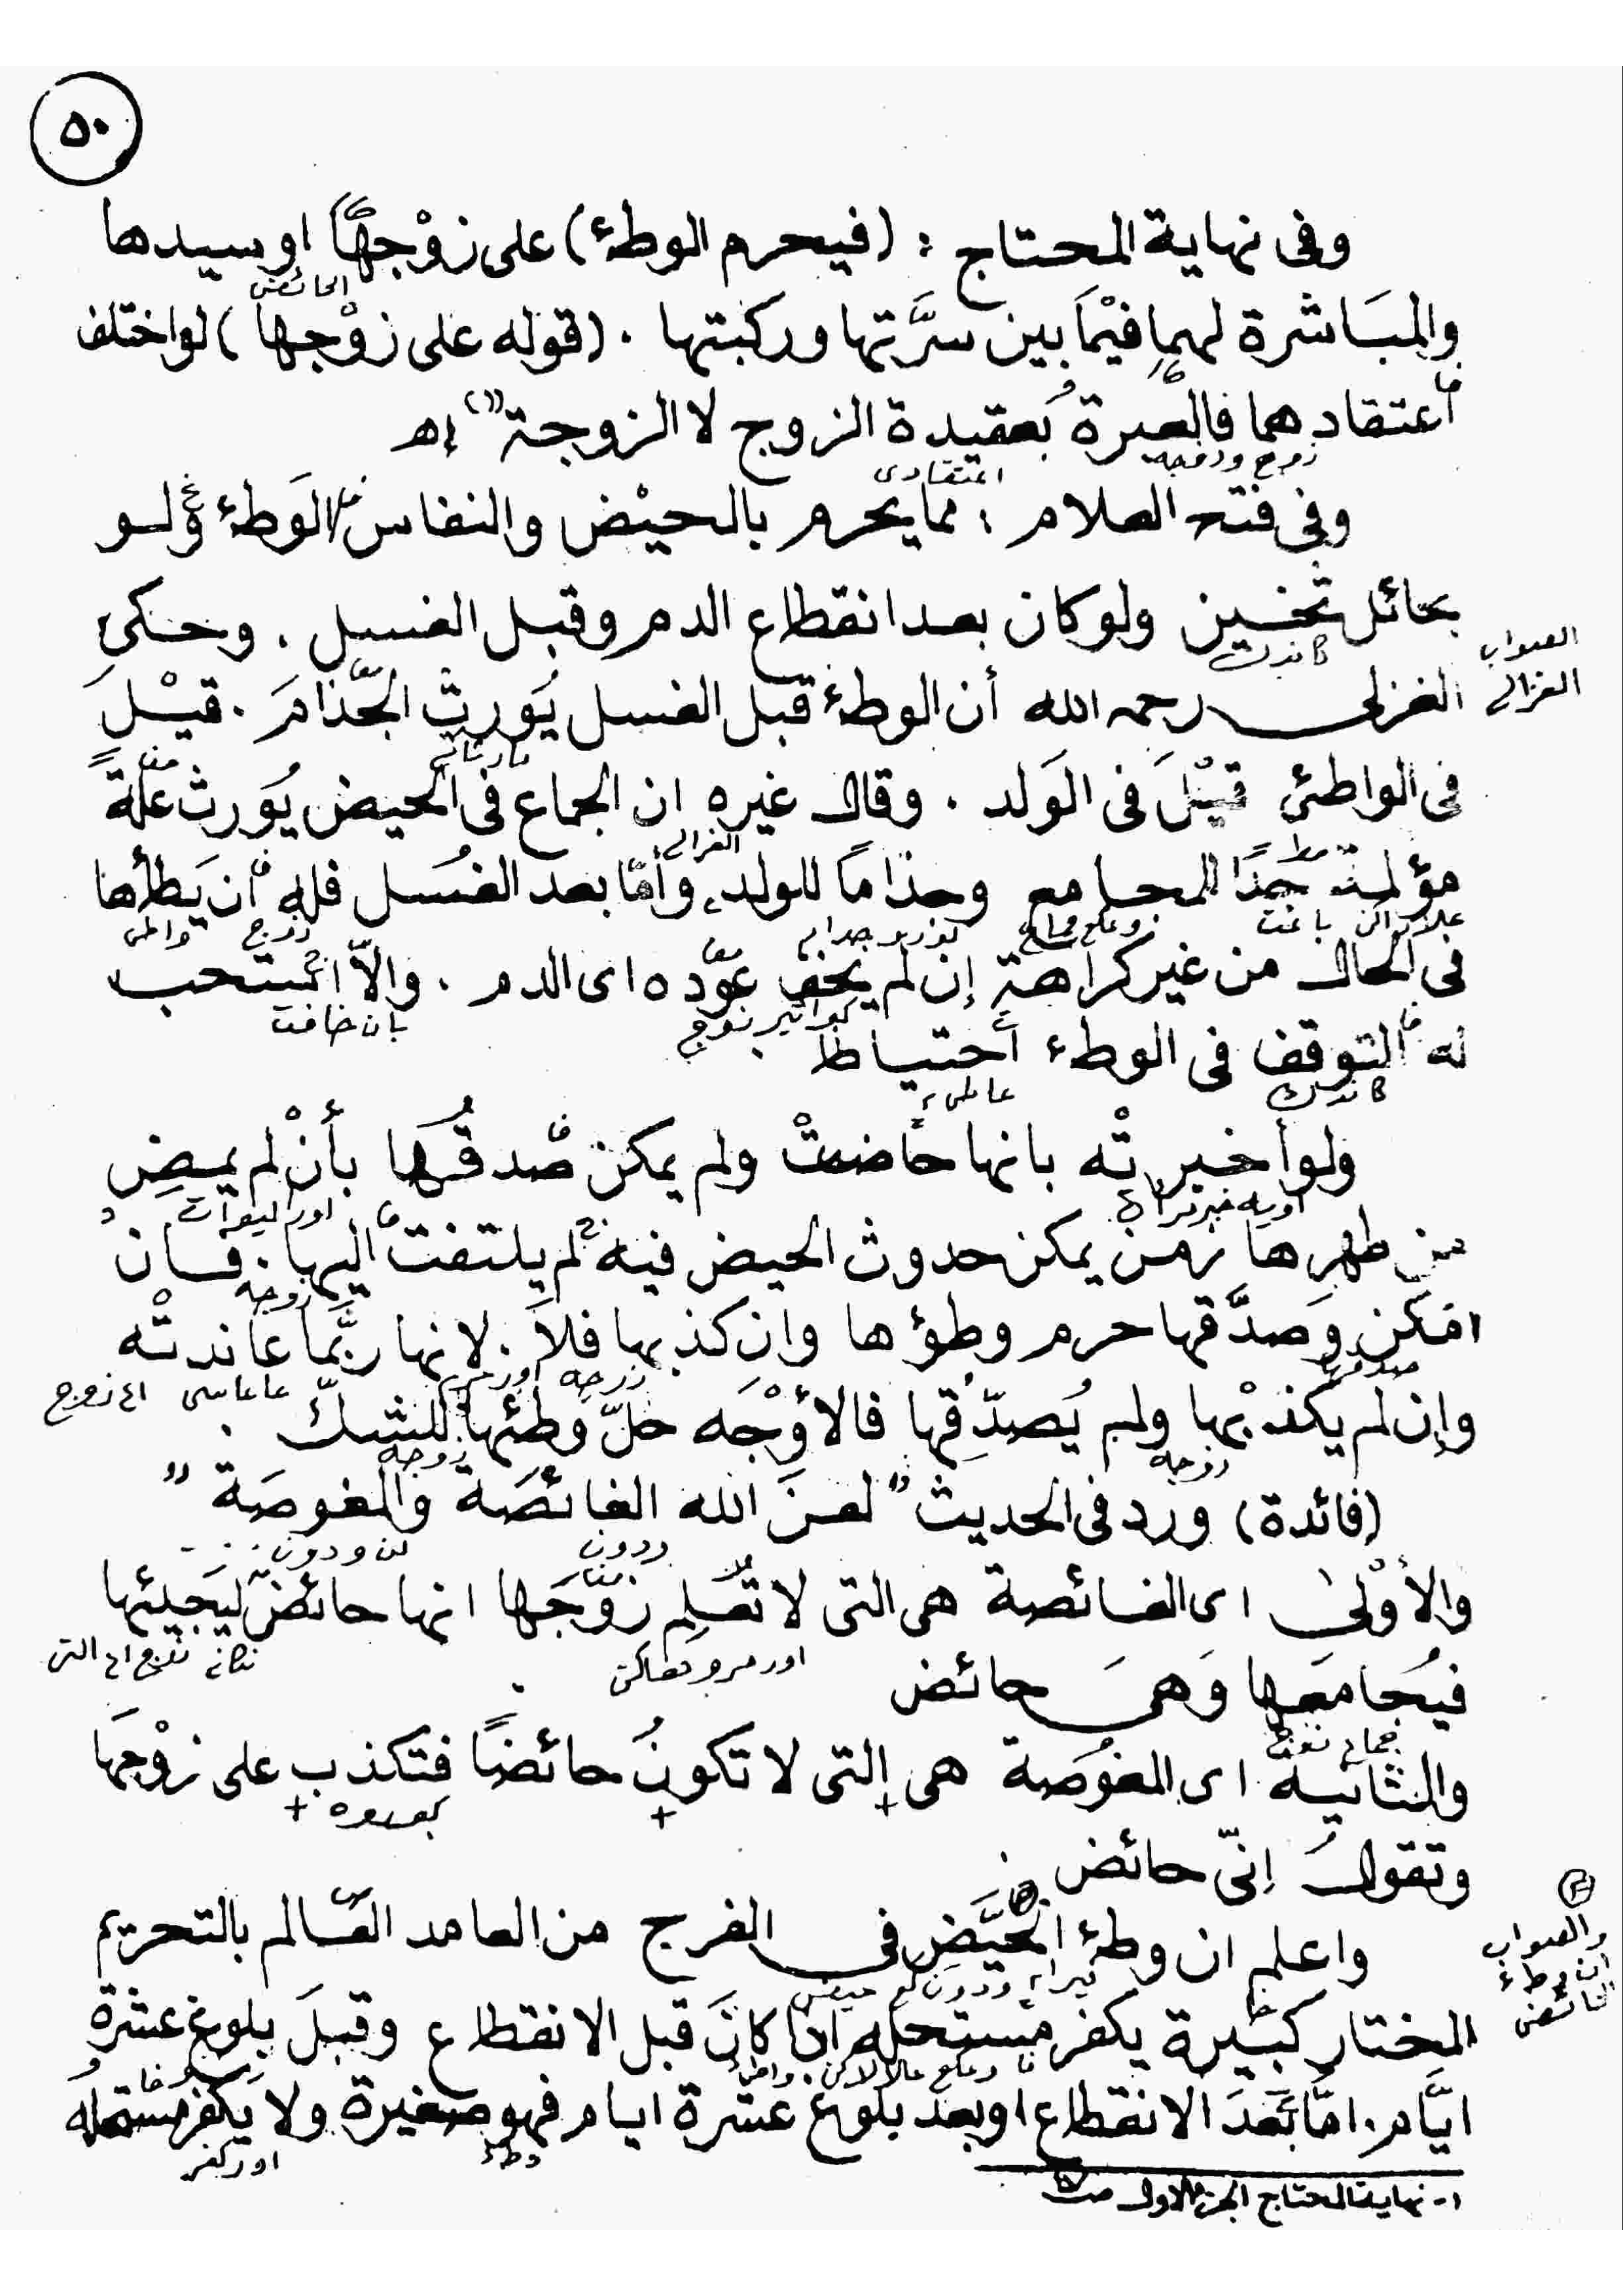 ٥٠
وفى نهاية المحتاج : (فيحرم الوطء) على زوْجهَا او سيدها
الحائض
والمبَاشرة لهما فيْمَا بين سرَّتها وركبتها . (قوله على زوْجها) لواختلف
أعتقادهما فالعبرة بعقيدة الزوج لا الزوجة "(١) إھ
زوج وزوجه
اعتقادى
وفى فتح العلام : مما يحرم بالحيْض والنفاس الوَطء ولو
بحائل تخين ولوكان بعد انقطاع الدم وقبل الغسل . وحكى
العبواب
الغزالى
كاندل
الغزلى رحمه الله أن الوطء قبل الغسل يُورث الجّذامَ . قيْلَ
فى الواطئ قيْلَ فى الوَلد . وقال غيره ان الجماع فى الحيض يُورث علّةً
الغزالى
مؤلمة جدًا للمجامع وجذامًا للولد، وأمّا بعد الغسل فله ان يَطأها
زوج
واطى
فى الحال من غير كراهة إن لم يخف عوّده اى الدم . والاّ استحب
بان خافت
له التوقف فى الوطء أحتياطا
كاندل
ولو أخبرتْه بانها حَاضتْ ولم يمكن صْدقُها بأنْ لم يمضِ
من طهرها زمن يمكن حدوث الحيض فيه لم يلتفت اليها . فان
زوجه
امكن وَصدَّقها حرم وطؤها وان كذبها فلاَ . لانها ربَّما عَاندتْه
صدقها
زوجه
اى زوج
وإن لم يكذبْها ولم يُصدّقها فالأوْجَه حلّ وَطئها للشكّ .
زوجه
زوجه
(فائدة) ورد فى الحديث " لعنَ الله الغائصَة والمغوصَة "
والأوْلى اى الغائصة هى التى لا تُعْلِم زوْجَها انها حائضٌ ليَجيئها
فيُجَامعَها وَهىَ حائض
والثانيَة اى المغوُصَة هى التى لا تكونُ حائضًا فتكذب على زوْجهَا
وتقولُ إنىّ حائض .
واعلم ان وطء الحُيَّضِ فى الفرج من العامد العَّالم بالتحريم
والعبواب
ان وطاء
الحائض
المختار كبيرة يكفر مستحله اذا كانَ قبل الانقطاع وقبلَ بلوغ عشرة
ايَّام . امّا بَعدَ الانقطاع اوبعد بلوغ عشرة ايام فهو صغيرة ولا يَكفر مستحله
وطء
اوركفر
١- نهاية المحتاج الجزء الاول